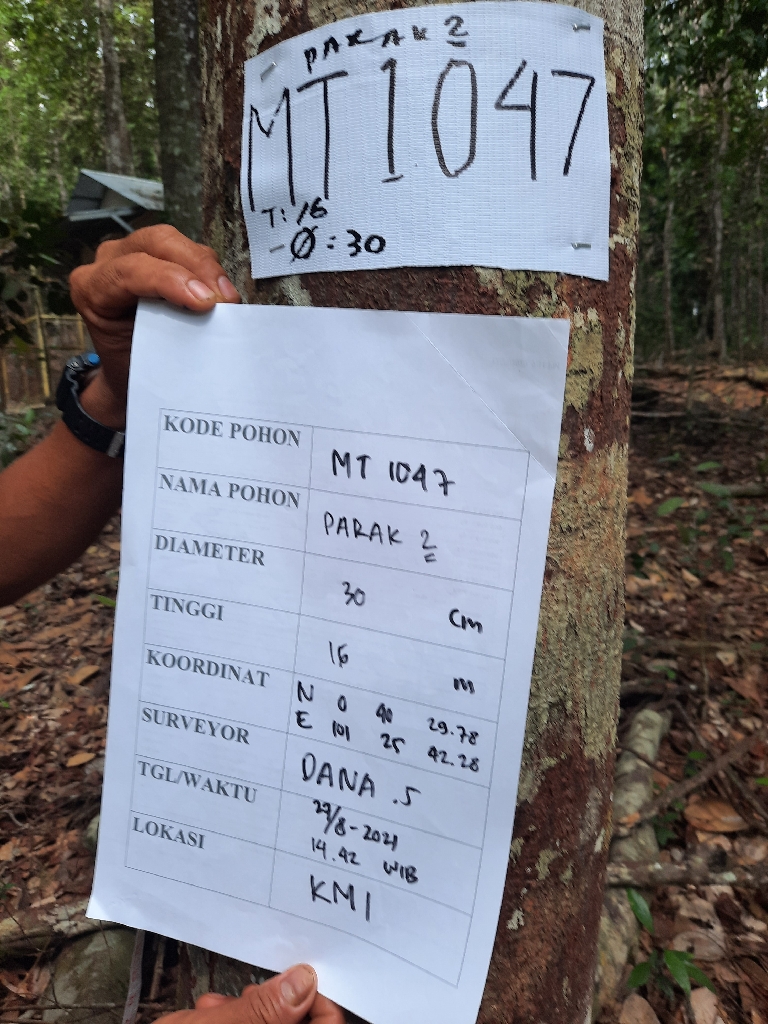 PARAK 2
MT 1047
T: 16
Ø: 30
KODE POHON MT 1047
NAMA POHON PARAK 2
DIAMETER 30 Cm
TINGGI 16 m
KOORDINAT N 0 40 29.78
E 101 25 42.28
SURVEYOR DANA .S
TGL/WAKTU 27/8-2021
14.42 WIB
LOKASI KMI